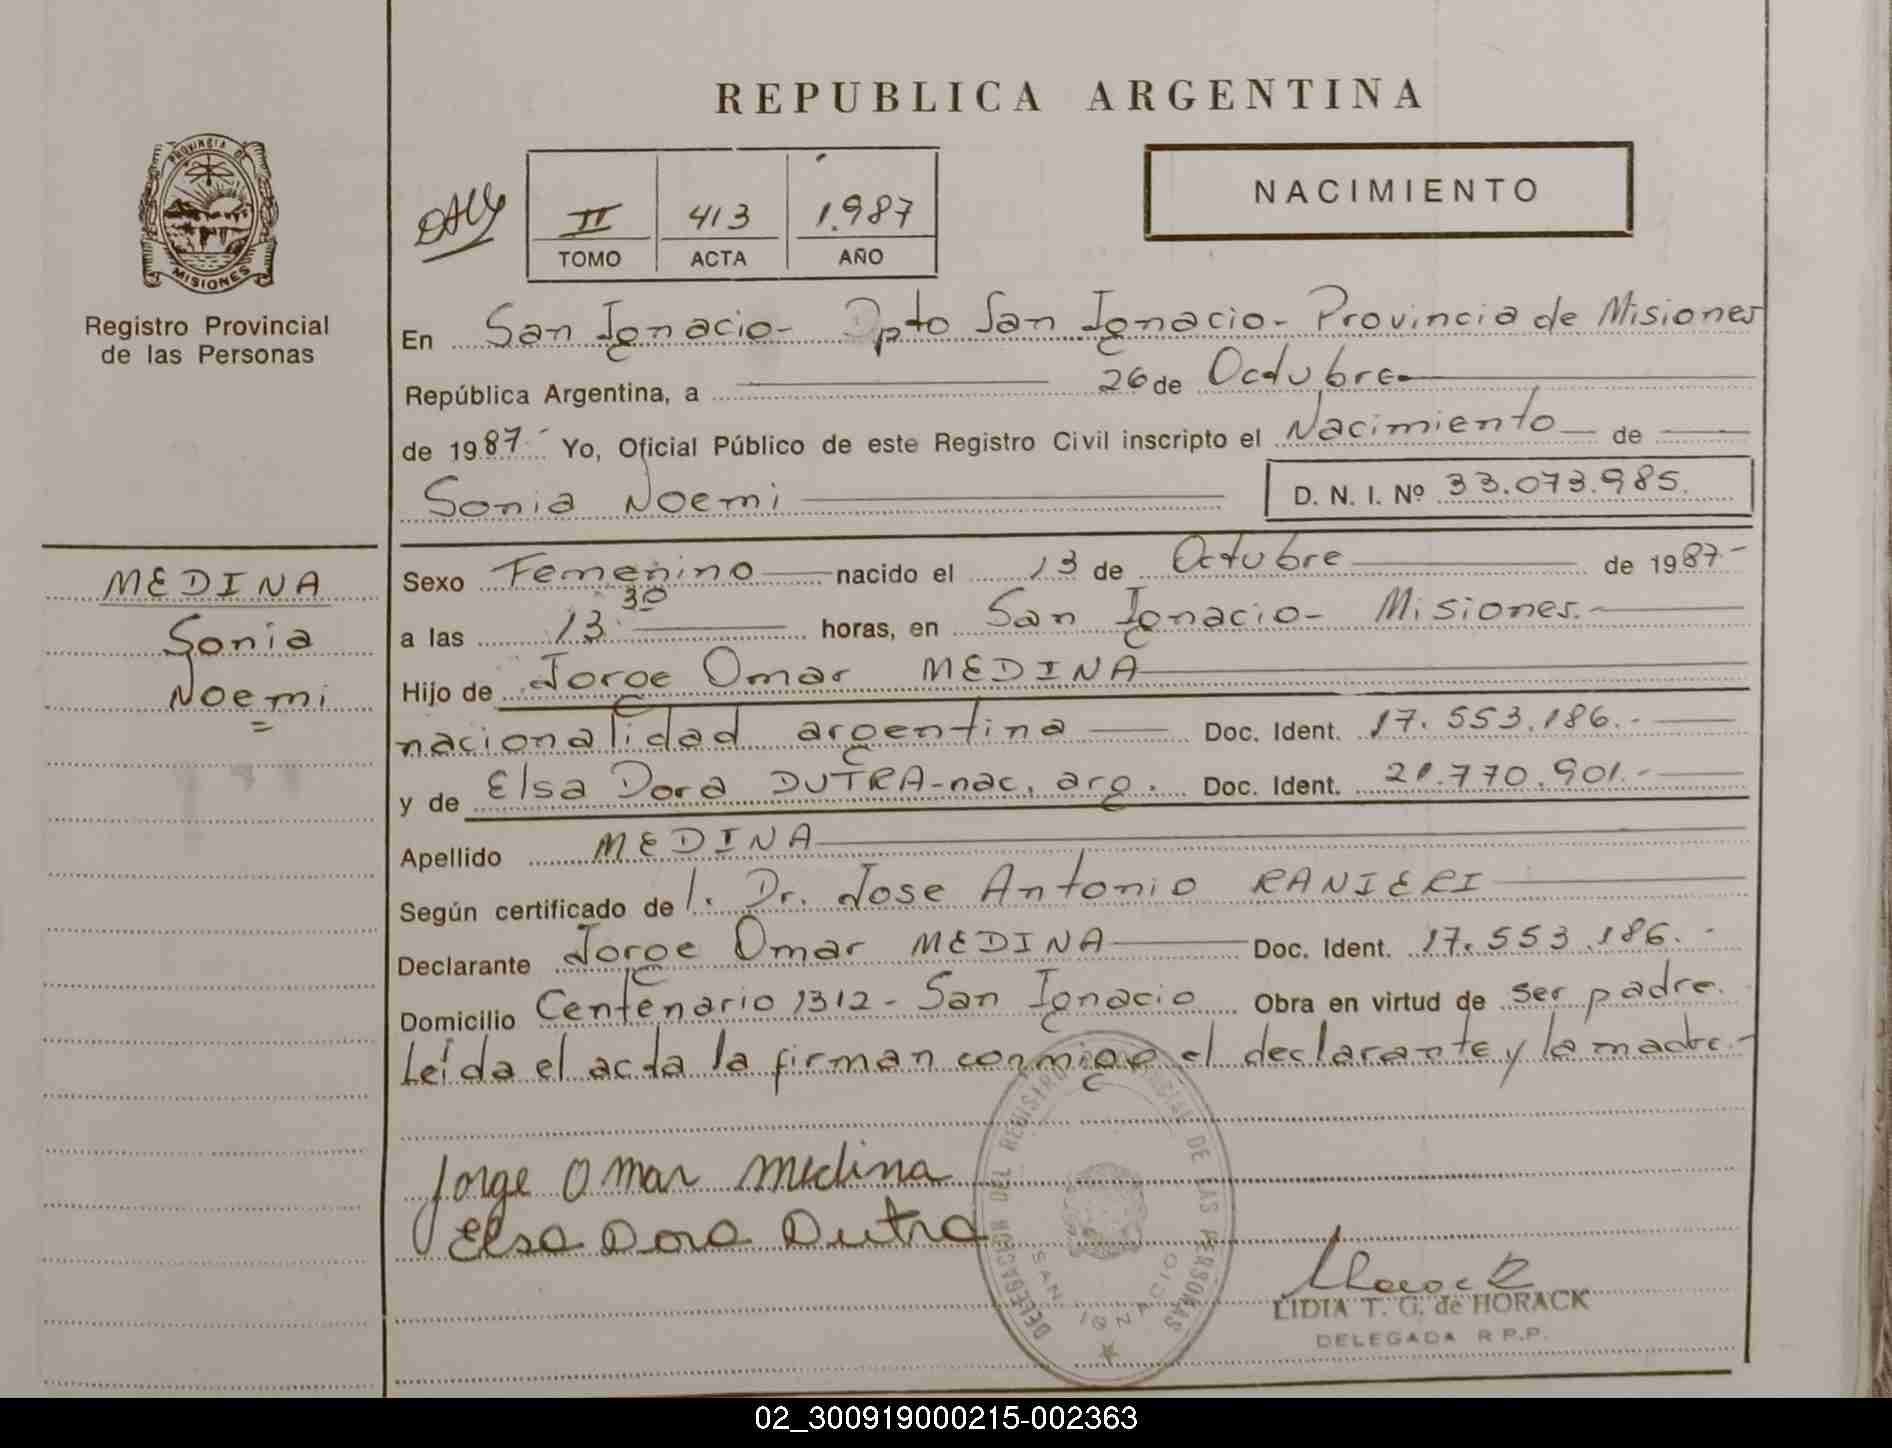 REPUBLICA ARGENTINA
PROVINCIA DE
MISIONES
Registro Provincial
de las Personas
II 413 1.987
TOMO ACTA AÑO
NACIMIENTO
En San Ignacio- Dpto San Ignacio- Provincia de Misiones
República Argentina, a 26 de Octubre
de 1987- Yo, Oficial Público de este Registro Civil inscripto el Nacimiento de
Sonia Noemi D. N. I. Nº 33.073.985.
MEDINA
Sonia
Noemi
Sexo Femenino nacido el 13 de Octubre de 1987-
a las 13 30 horas, en San Ignacio- Misiones.-
Hijo de Jorge Omar MEDINA
nacionalidad argentina Doc. Ident. 17.553.186.-
y de Elsa Dora DUTRA-nac. arg. Doc. Ident. 21.770.901.-
Apellido MEDINA
Según certificado de l. Dr. Jose Antonio RANIERI
Declarante Jorge Omar MEDINA Doc. Ident. 17.553.186.-
Domicilio Centenario 1312- San Ignacio Obra en virtud de ser padre.
Leída el acta la firman conmigo el declarante y la madre.-
Jorge Omar Medina
Elsa Dora Dutra
DELEGACION DEL REGISTRO PROVINCIAL DE LAS PERSONAS
SAN IGNACIO
LIDIA T. G. de HORACK
DELEGADA R.P.P.
02_300919000215-002363